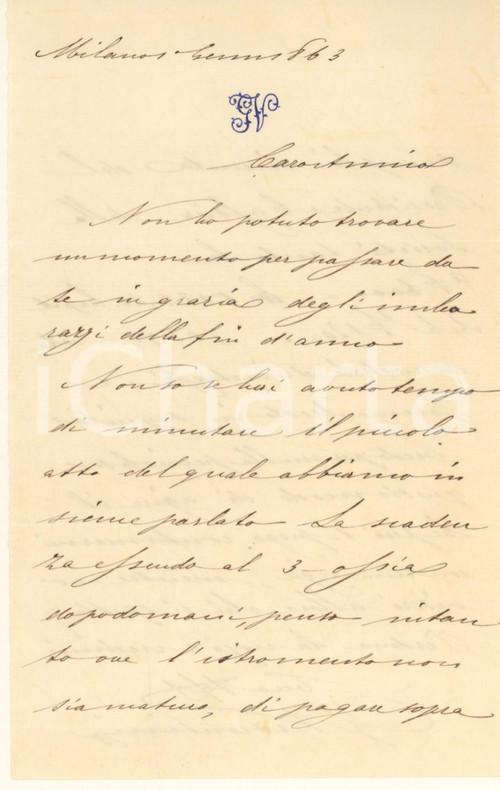 Milano 1 Genn 863
Caro Amico
Non ho potuto trovare
un momento per passare da
te in grazia degli imba
razzi della fin d'anno
Non so se hai avuto tempo
di minutare il piccolo
atto del quale abbiamo in
sieme parlato La scaden
za essendo al 3 - ossia
dopodomani, penso intan
to ove l'istromento non
sia maturo, di pagare sopra
iCharta